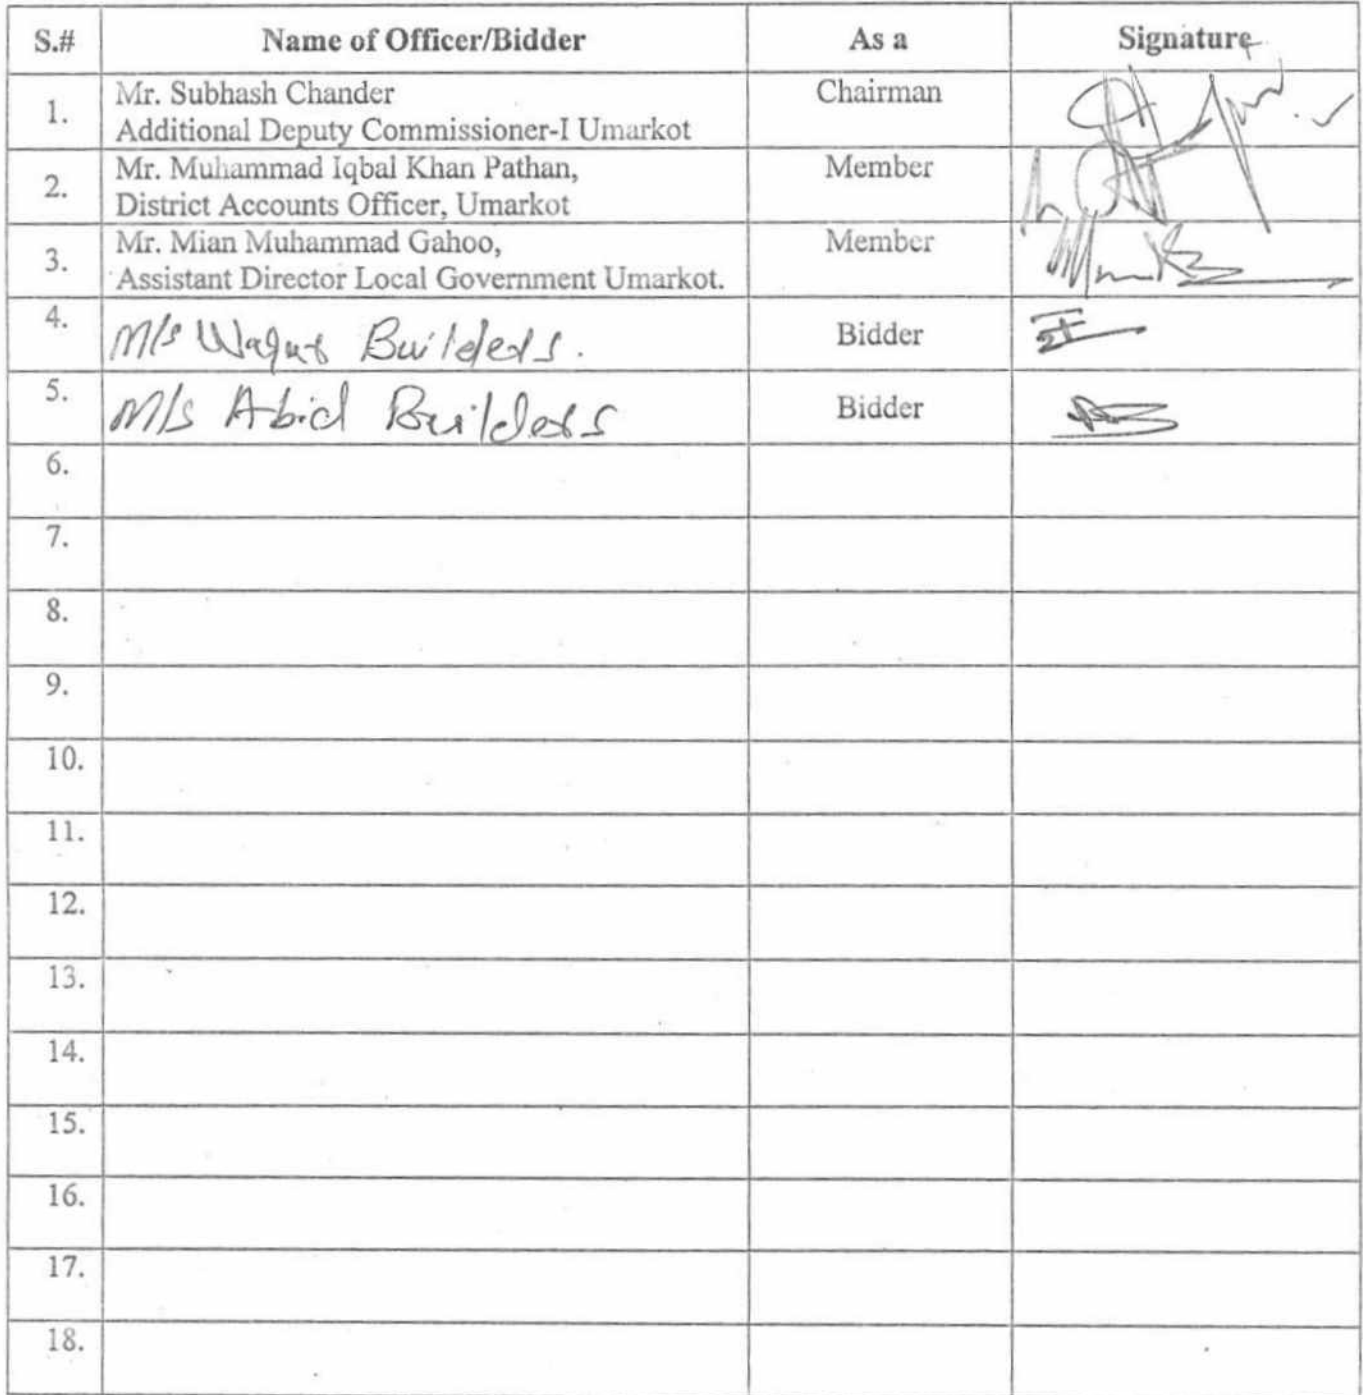 S.# Name of Officer/Bidder As a Signature
1. Mr. Subhash Chander Chairman
Additional Deputy Commissioner-I Umarkot
2. Mr. Muhammad Iqbal Khan Pathan, Member
District Accounts Officer, Umarkot
3. Mr. Mian Muhammad Gahoo, Member
Assistant Director Local Government Umarkot.
4. M/s Waqas Builders. Bidder
5. M/s Abid Builders Bidder
6.
7.
8.
9.
10.
11.
12.
13.
14.
15.
16.
17.
18.